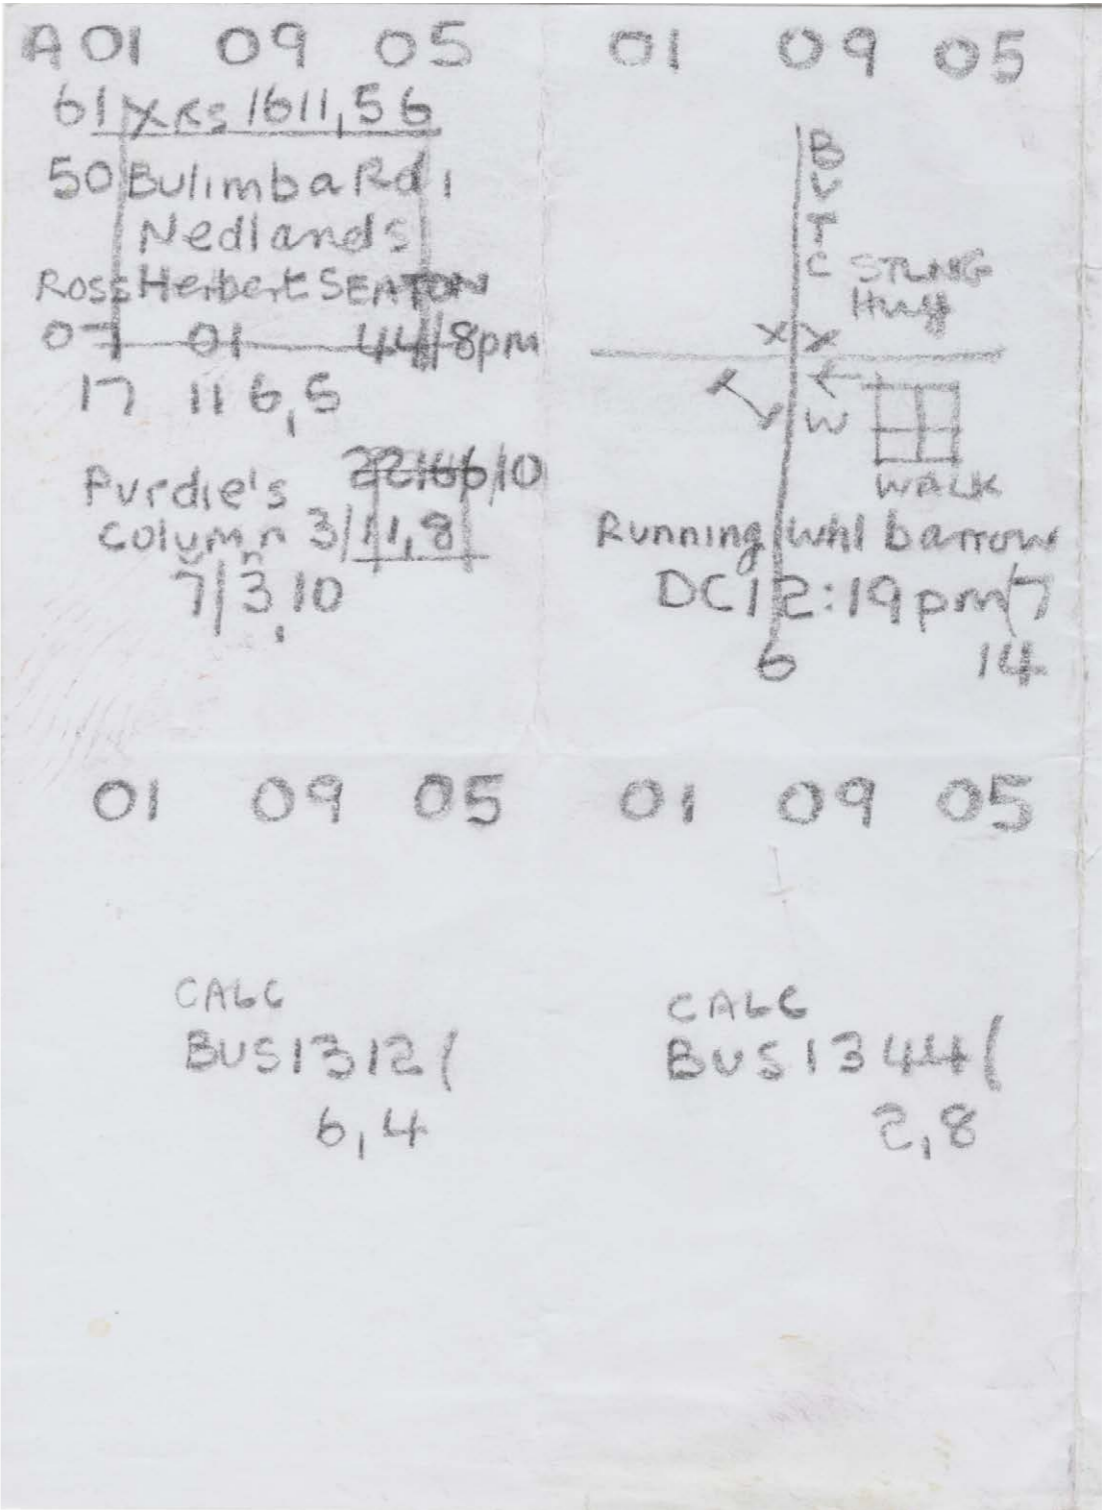 A 01 09 05
61 XRS 1611,56
50 Bulimba Rd,
Nedlands
Ross Herbert SEATON
07 01 44/8pm
17 11 6,5
Purdie's 22166/10
column 3/11,8
7/3,10
01 09 05
BUTC
STLNG
Hwy
X X
W
WALK
Running whl barrow
DC12:19pm/7
6 14
01 09 05
CALC
BUS1312(
6,4
01 09 05
CALC
BUS1344(
2,8